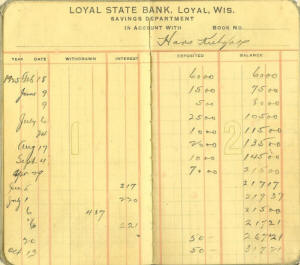 LOYAL STATE BANK, LOYAL, WIS.
SAVINGS DEPARTMENT
IN ACCOUNT WITH BOOK NO.
Hans
YEAR DATE WITHDRAWN INTEREST DEPOSITED BALANCE
Feb 18 60 00 60 00
June 9 15 00 75 00
9 5 00 80 00
July 6 25 00 105 00
24 10 00 115 00
Aug 17 20 00 135 00
Sept 4 10 00 145 00
70 00 215 00
Jan 5 2 17 217 17
July 1 2 20 219 37
6 4 37 215 00
6 2 21 217 21
20 50 267 21
Oct 19 50 317 21
1 2